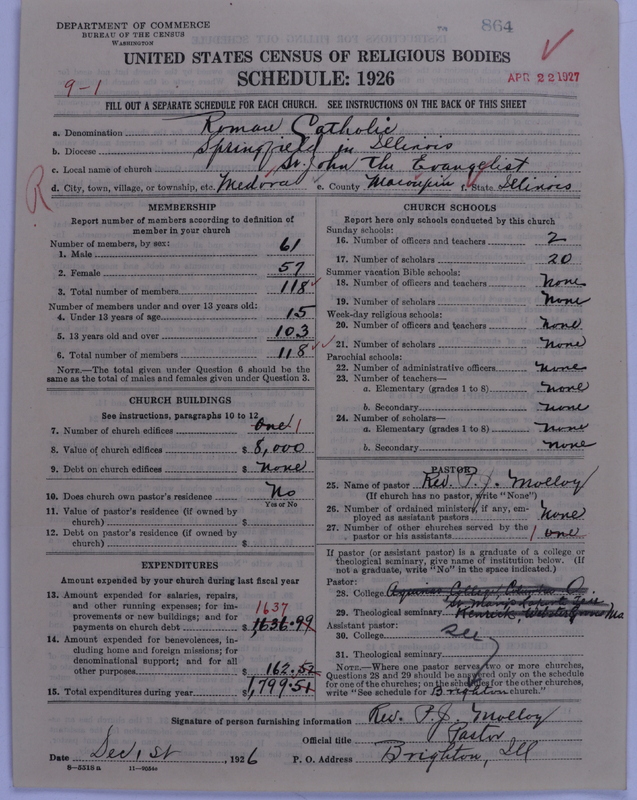 DEPARTMENT OF COMMERCE
BUREAU OF THE CENSUS
WASHINGTON
864
UNITED STATES CENSUS OF RELIGIOUS BODIES
SCHEDULE: 1926
APR 22 1927
9-1
FILL OUT A SEPARATE SCHEDULE FOR EACH CHURCH. SEE INSTRUCTIONS ON THE BACK OF THIS SHEET
a. Denomination Roman Catholic
b. Diocese Springfield in Illinois
c. Local name of church St. John the Evangelist
R
d. City, town, village, or township, etc. Medora e. County Macoupin f. State Illinois
MEMBERSHIP
Report number of members according to definition of member in your church
Number of members, by sex:
1. Male 61
2. Female 57
3. Total number of members 118
Number of members under and over 13 years old:
4. Under 13 years of age 15
5. 13 years old and over 103
6. Total number of members 118
NOTE.—The total given under Question 6 should be the
same as the total of males and females given under Question 3.
CHURCH BUILDINGS
See instructions, paragraphs 10 to 12
7. Number of church edifices One 1
8. Value of church edifices $ 8,000
9. Debt on church edifices $ None
10. Does church own pastor's residence No
Yes or No
11. Value of pastor's residence (if owned by
church) $
12. Debt on pastor's residence (if owned by
church) $
EXPENDITURES
Amount expended by your church during last fiscal year
13. Amount expended for salaries, repairs,
and other running expenses; for im-
provements or new building; and for
payments on church debt $ 1636.99
1637
14. Amount expended for benevolences, in-
cluding home and foreign missions; for
denominational support; and for all
other purposes 162.52
15. Total expenditures during year $ 1,799.51
CHURCH SCHOOLS
Report here only schools conducted by this church
Sunday schools:
16. Number of officers and teachers 2
17. Number of scholars 20
Summer vacation Bible schools:
18. Number of officers and teachers None
19. Number of scholars None
Week-day religious schools:
20. Number of officers and teachers None
21. Number of scholars None
Parochial schools:
22. Number of administrative officers None
23. Number of teachers—
a. Elementary (grades 1 to 8) None
b. Secondary None
24. Number of scholars—
a. Elementary (grades 1 to 8) None
b. Secondary None
PASTOR
25. Name of pastor Rev. P. J. Molloy
(If church has no pastor, write "None")
26. Number of ordained ministers, if any, em-
ployed as assistant pastors None
27. Number of other churches served by the
pastor or his assistants 1 one
If pastor (or assistant pastor) is a graduate of a college or
theological seminary, give name of institution below. (If
not a graduate, write "No" in the space indicated.)
Pastor:
28. College
29. Theological seminary Kenrick Webster Groves Mo
Assistant pastor:
30. College See
31. Theological seminary
NOTE.—Where one pastor serves two or more churches,
Questions 28 and 29 should be answered only on the schedule
for one of the churches; on the schedules for the other churches,
write "See schedule for Brighton church."
Signature of person furnishing information Rev. P. J. Molloy
Official title Pastor
Date Dec 1st, 1926 P. O. Address Brighton, Ill
8—5518 a 11—9054a